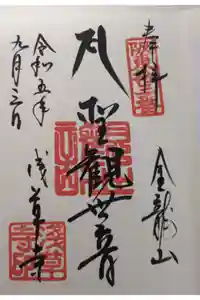 奉拝
金龍山
聖観世音
浅草寺
令和五年
九月三日